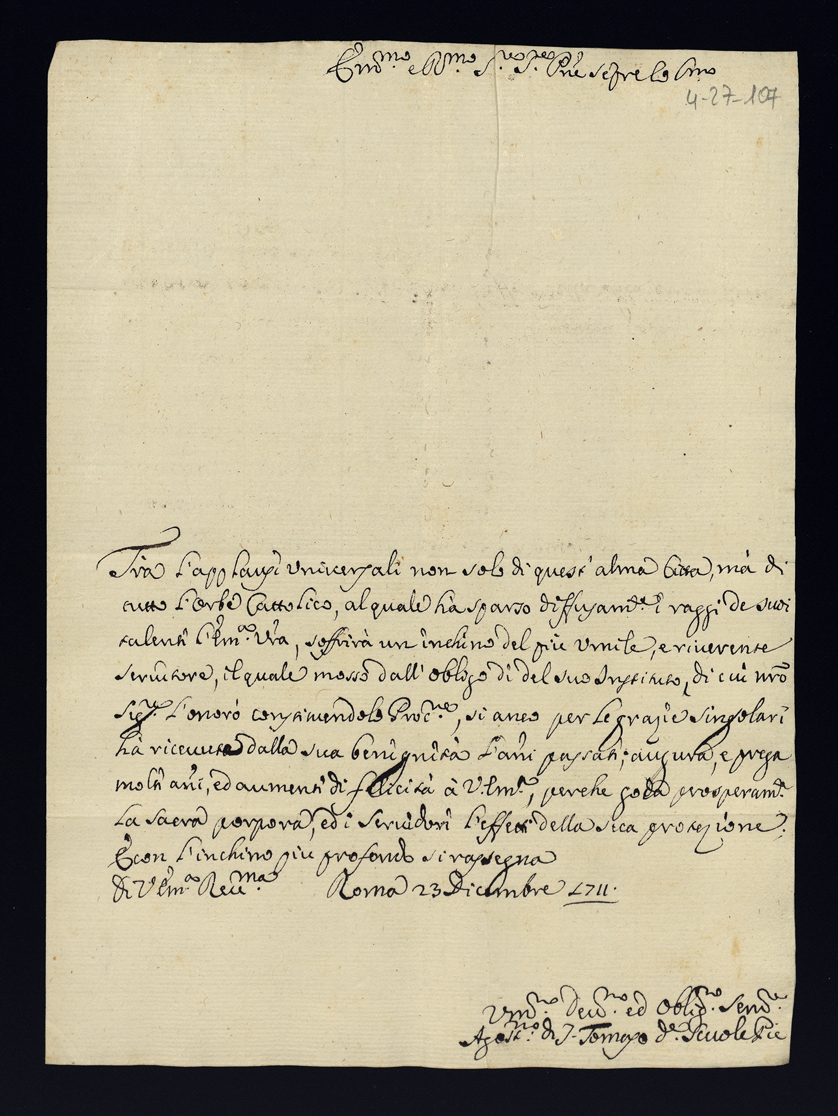 Em̃mo e Rmo Sre Sre Prñe
4-27-107
Tra l'applausi universali non solo di quest'alma Città, mà di
tutto l'Orbe Cattolico, al quale hà sparso diffusamte i raggi de suoi
talenti l'Emã Vrã, soffrirà un inchino del più umile, e riverente
servitore, il quale mosso dall'obligo di del suo Instituto, di cui nrõ
Sigre l'onorò constituendolo Procre, si anco per le grazie singolari
hà ricevute dalla sua benignità l'añi passati; augura, e prega
molti añi, ed aumenti di felicità à V Emã, perche goda prosperamte
la sacra porpora, ed i servidori l'effetti della sua protezione.
E con l'inchino più profondo si rassegna
Di V Emã Revma Roma 23 Dicembre 1711.
Vmmo Devmo ed Obligmo Serre
Agostno di S. Tomaso de Scuole Pie